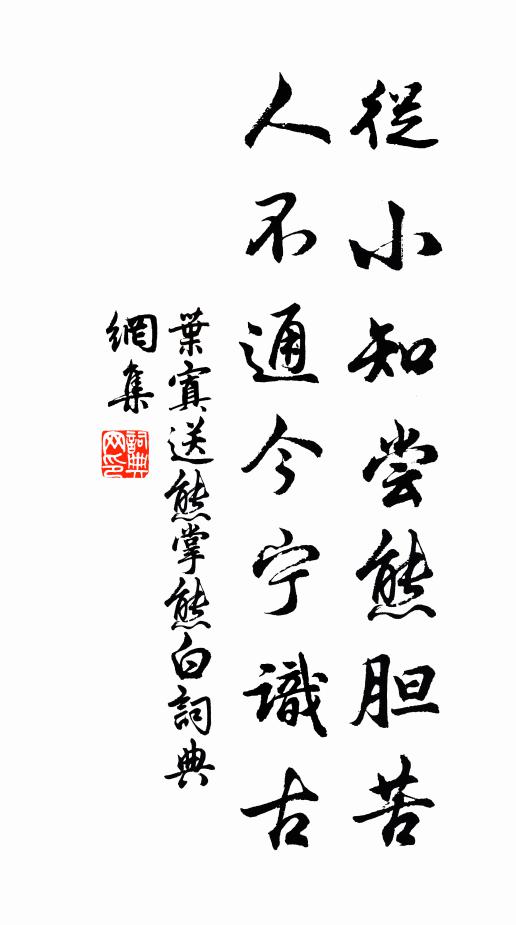 從小知尝熊胆苦
人不通今宁識古
葉寘送熊掌熊白詞典
網集
詞典网印